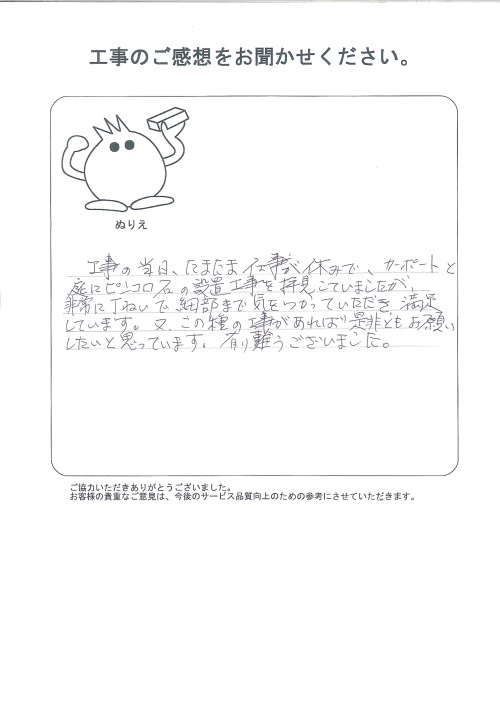 工事のご感想をお聞かせください。
ぬりえ
工事の当日、たまたま仕事が休みで、カーポートと
庭にピンコロ石の設置工事を拝見していましたが、
非常に丁ねいで細部まで気をつかっていただき、満足
しています。又、この種の工事があれば是非ともお願い
したいと思っています。有り難うございました。
ご協力いただきありがとうございました。
お客様の貴重なご意見は、今後のサービス品質向上のための参考にさせていただきます。